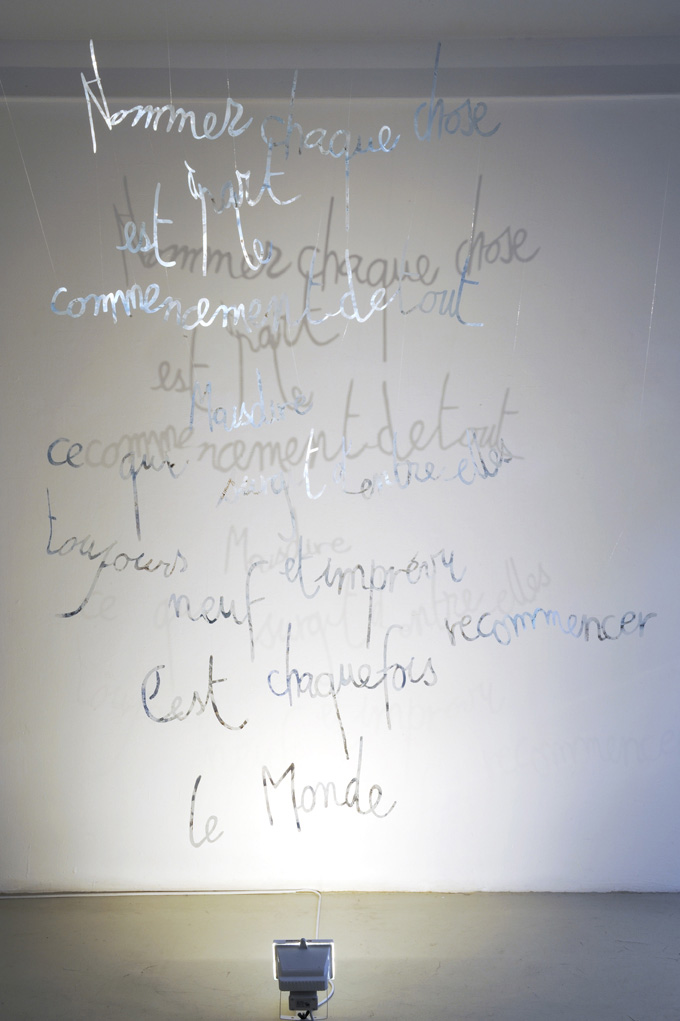 Nommer chaque chose
à part
est le
commencement de tout
Mais dire
ce qui surgit d'entre elles
toujours et imprévu
neuf
recommencer
C'est chaque fois
le Monde